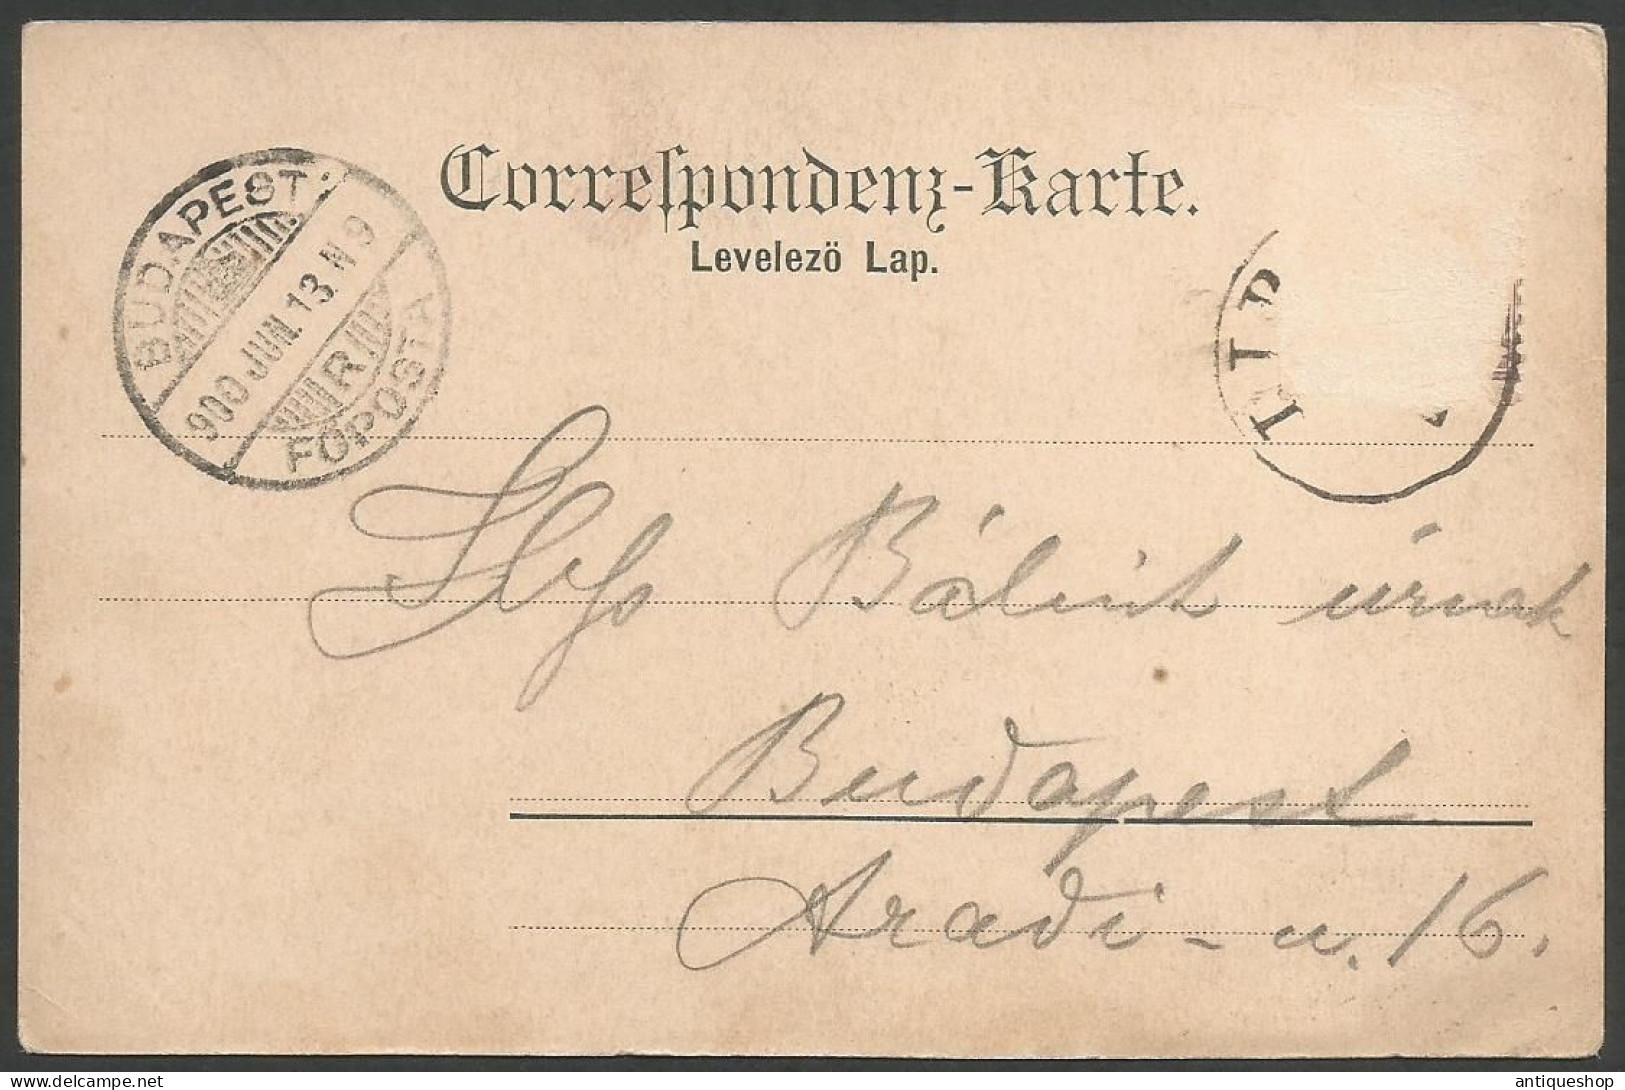 Correspondenz-Karte.
Levelezö Lap.
BUDAPEST
900 JUN. 13. N 9
R
FŐPOSTA
LIP
Bálint úrnak
Budapest
Aradi-u. 16.
delcampe.net
antiqueshop